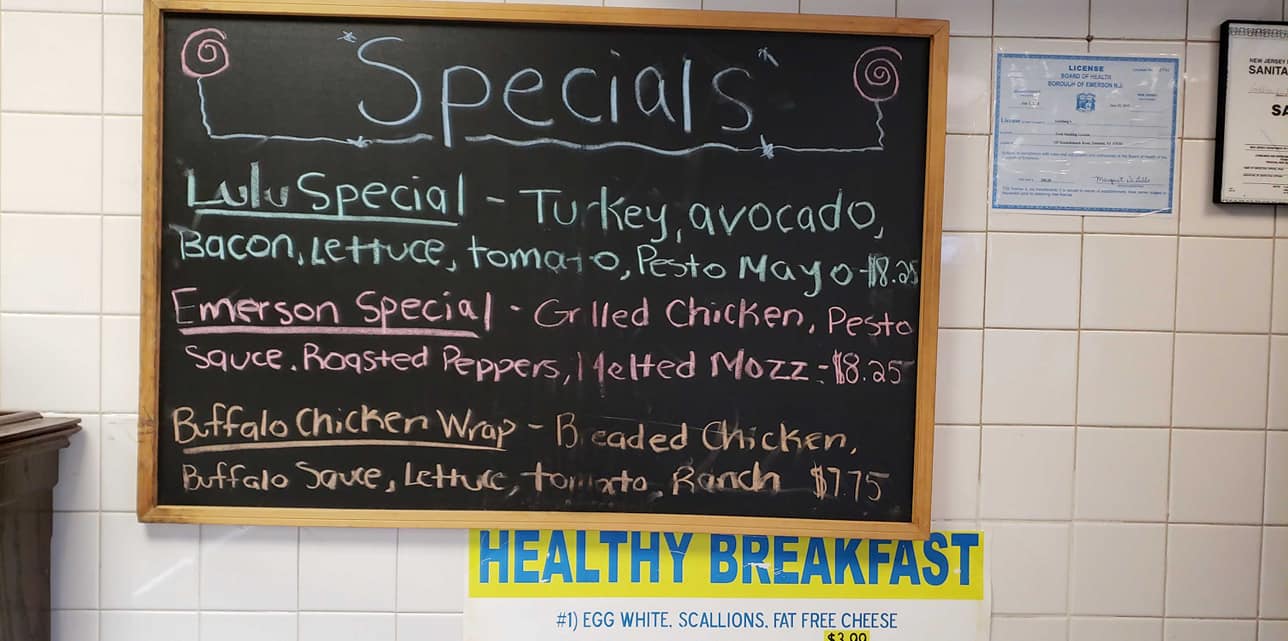 "Specials"
Lulu Special - Turkey, avocado,
Bacon, Lettuce, tomato, Pesto Mayo - $8.25
Emerson Special - Grilled Chicken, Pesto
Sauce. Roasted Peppers, Melted Mozz - $8.25
Buffalo Chicken Wrap - Breaded Chicken,
Buffalo Sauce, Lettuce, tomato, Ranch $7.75
HEALTHY BREAKFAST
#1) EGG WHITE, SCALLIONS, FAT FREE CHEESE
$3.99
LICENSE
BOARD OF HEALTH
BOROUGH OF EMERSON N.J.
License
NEW JERSEY
SANITA
SA